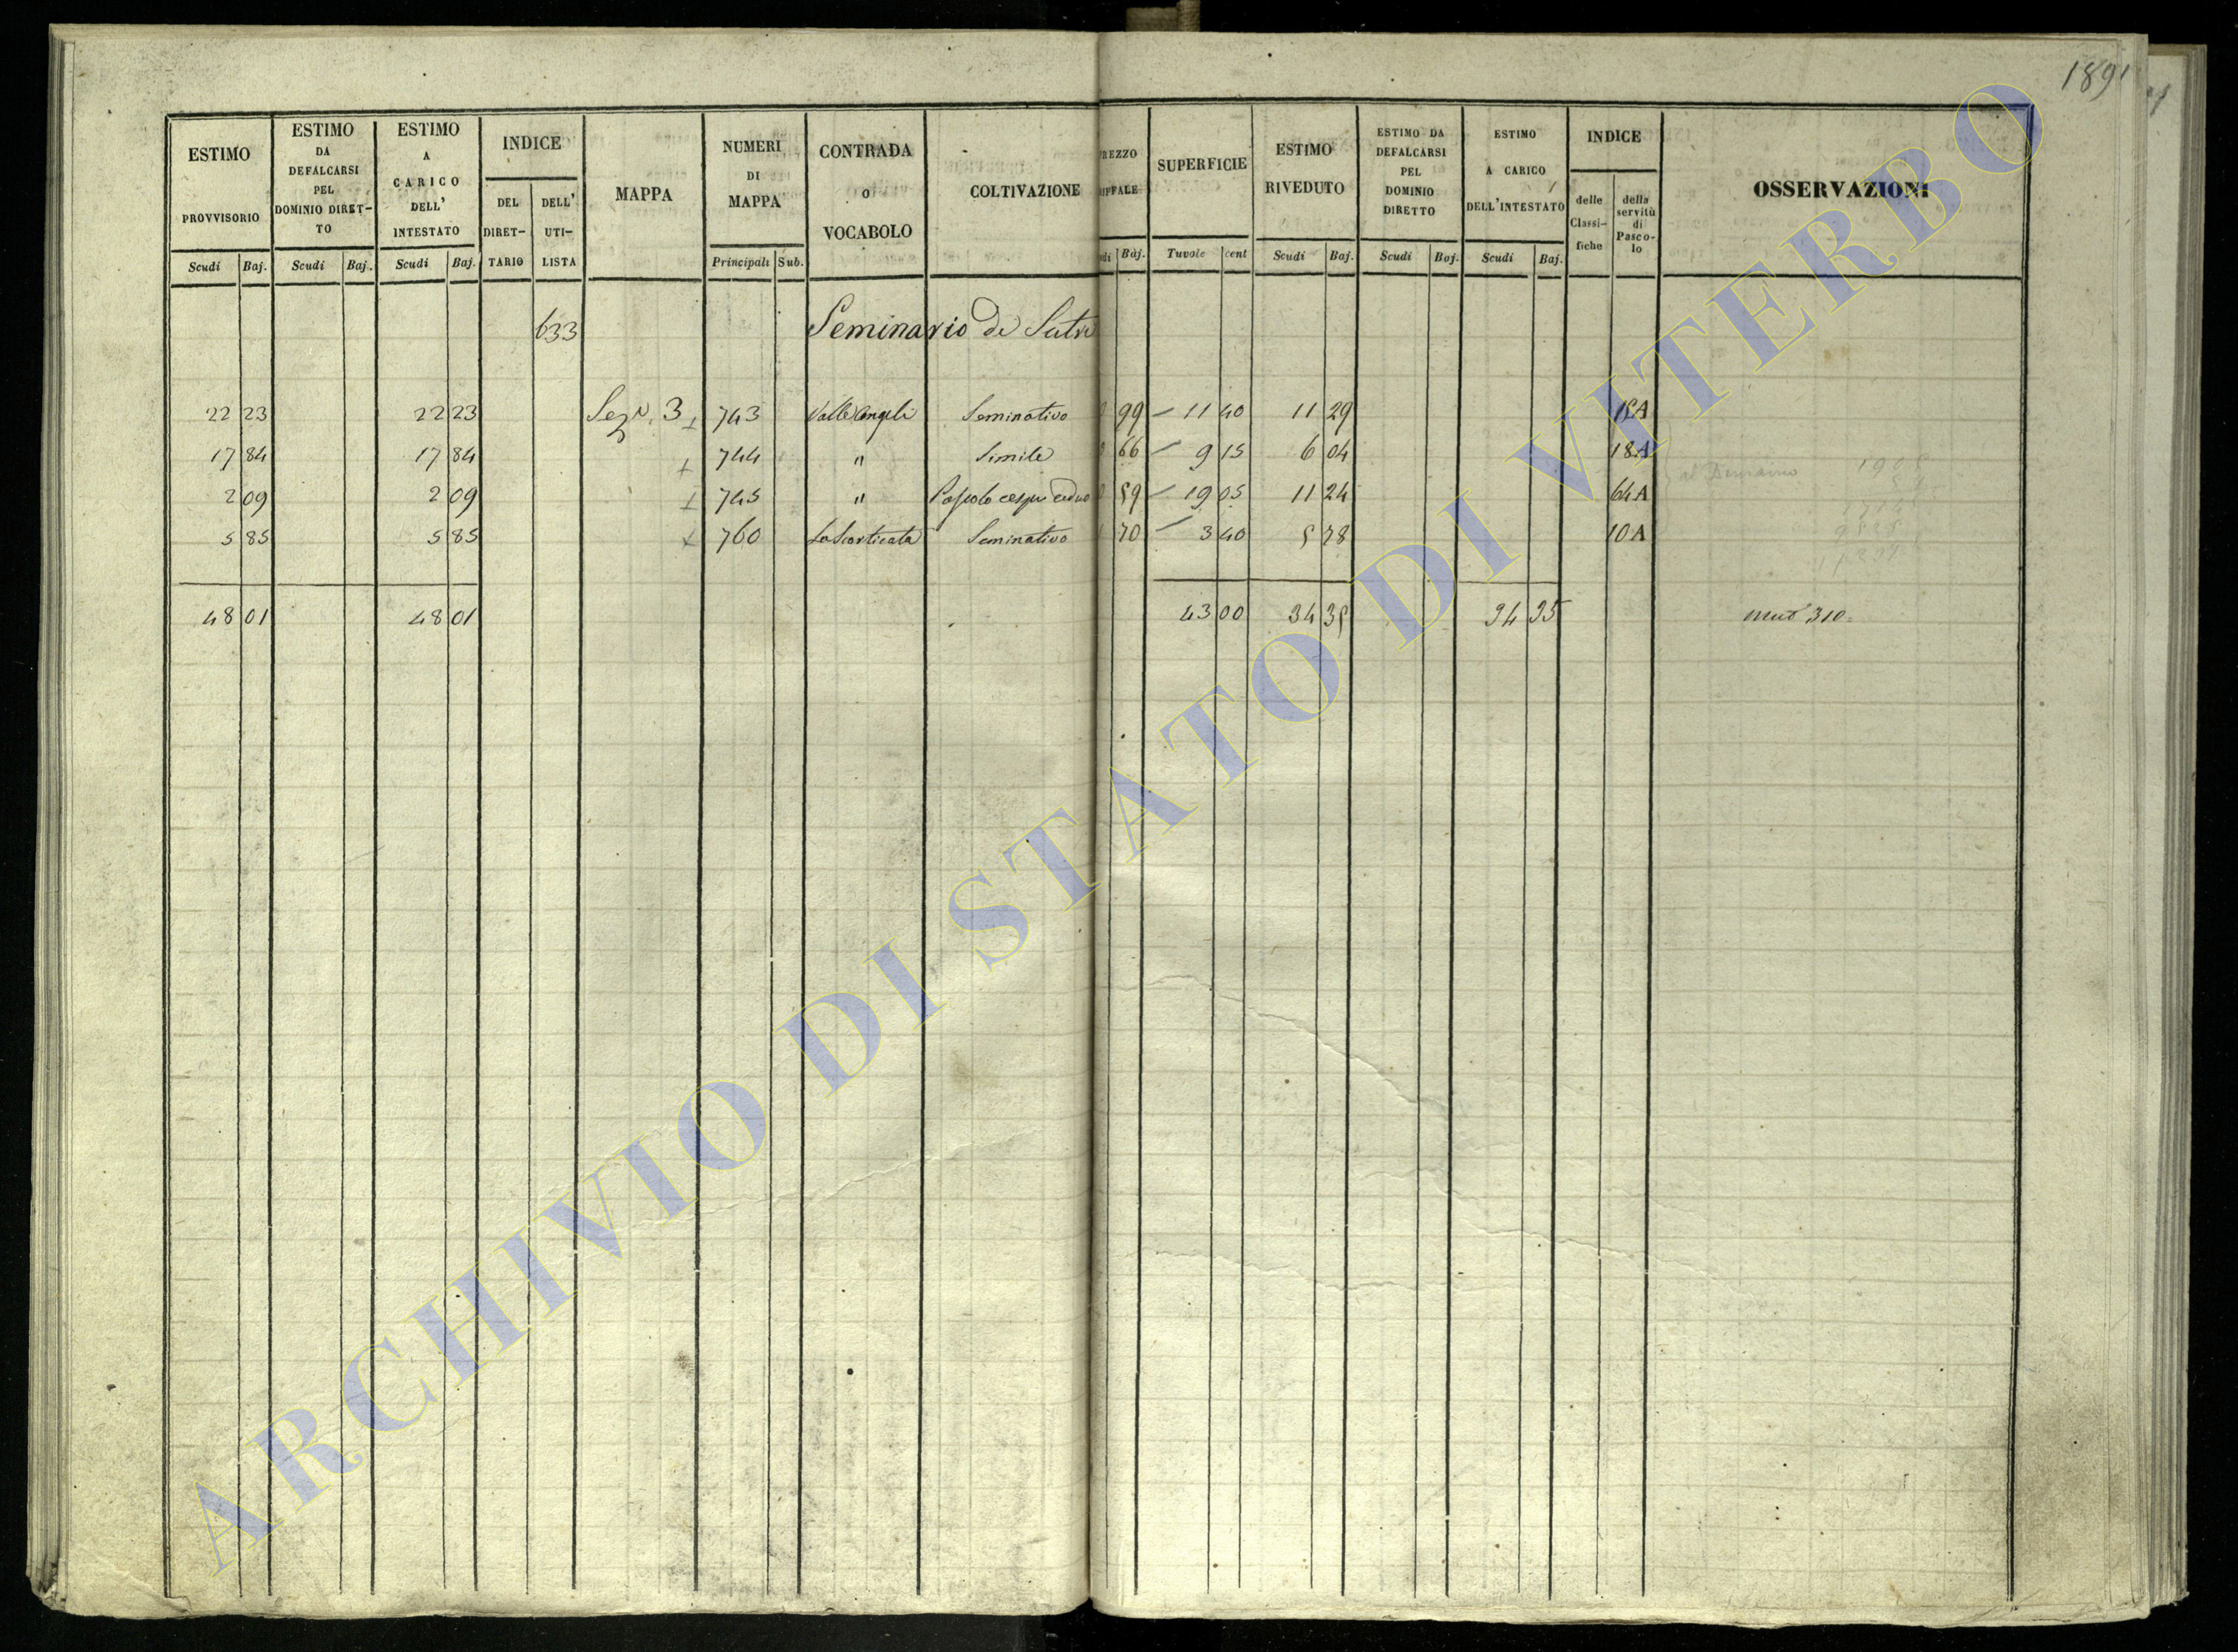 1891
ESTIMO PROVVISORIO Scudi Baj.
ESTIMO DA DEFALCARSI PEL DOMINIO DIRET-TO Scudi Baj.
ESTIMO A CARICO DELL' INTESTATO Scudi Baj.
INDICE DEL DIRET-TARIO DELL' UTI-LISTA
MAPPA
NUMERI DI MAPPA Principali Sub.
CONTRADA O VOCABOLO
COLTIVAZIONE
Baj.
SUPERFICIE Tavole cent
ESTIMO RIVEDUTO Scudi Baj.
ESTIMO DA DEFALCARSI PEL DOMINIO DIRETTO Scudi Baj.
ESTIMO A CARICO DELL'INTESTATO Scudi Baj.
INDICE delle Classi-fiche della servitù di Pasco-lo
OSSERVAZIONI
633 Seminario di Sutri
22 23 22 23 Sezn. 3 743 Valle Angeli Seminativo 99 11 40 11 29 18A
17 84 17 84 744 " Simile 66 9 15 6 04 18A
2 09 2 09 745 " Pascolo cespu ceduo 59 19 05 11 24 64A
5 85 5 85 760 La Scorticata Seminativo 70 3 40 5 78 10A
48 01 48 01 43 00 34 35 34 35 mut 310
ARCHIVIO DI STATO DI VITERBO